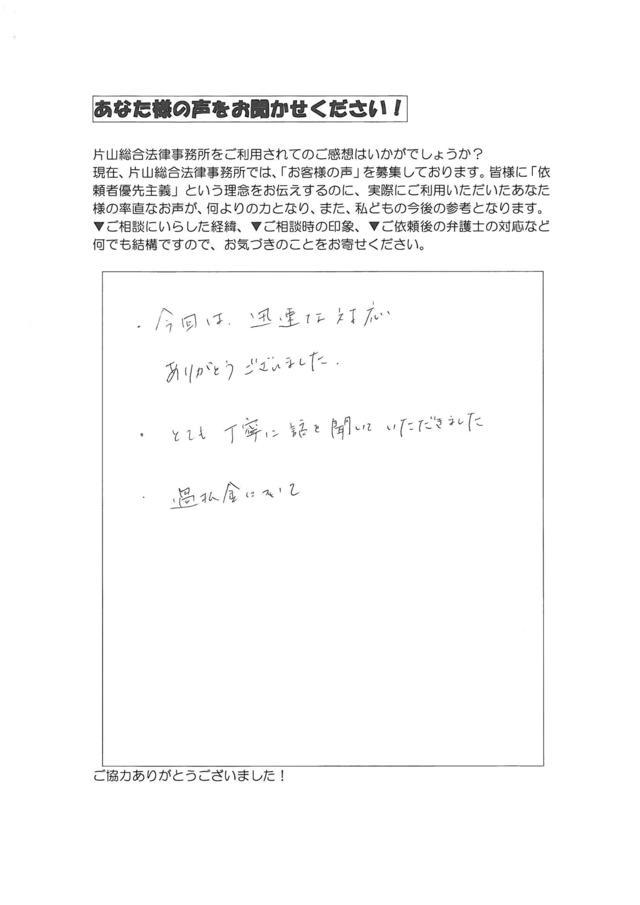 あなた様の声をお聞かせください！
片山総合法律事務所をご利用されてのご感想はいかがでしょうか？
現在、片山総合法律事務所では、「お客様の声」を募集しております。皆様に「依
頼者優先主義」という理念をお伝えするのに、実際にご利用いただいたあなた
様の率直なお声が、何よりの力となり、また、私どもの今後の参考となります。
▼ご相談にいらした経緯、▼ご相談時の印象、▼ご依頼後の弁護士の対応など
何でも結構ですので、お気づきのことをお寄せください。
・今回は、迅速な対応
ありがとうございました.
・とても丁寧に話を聞いていただきました
・過払金について
ご協力ありがとうございました！